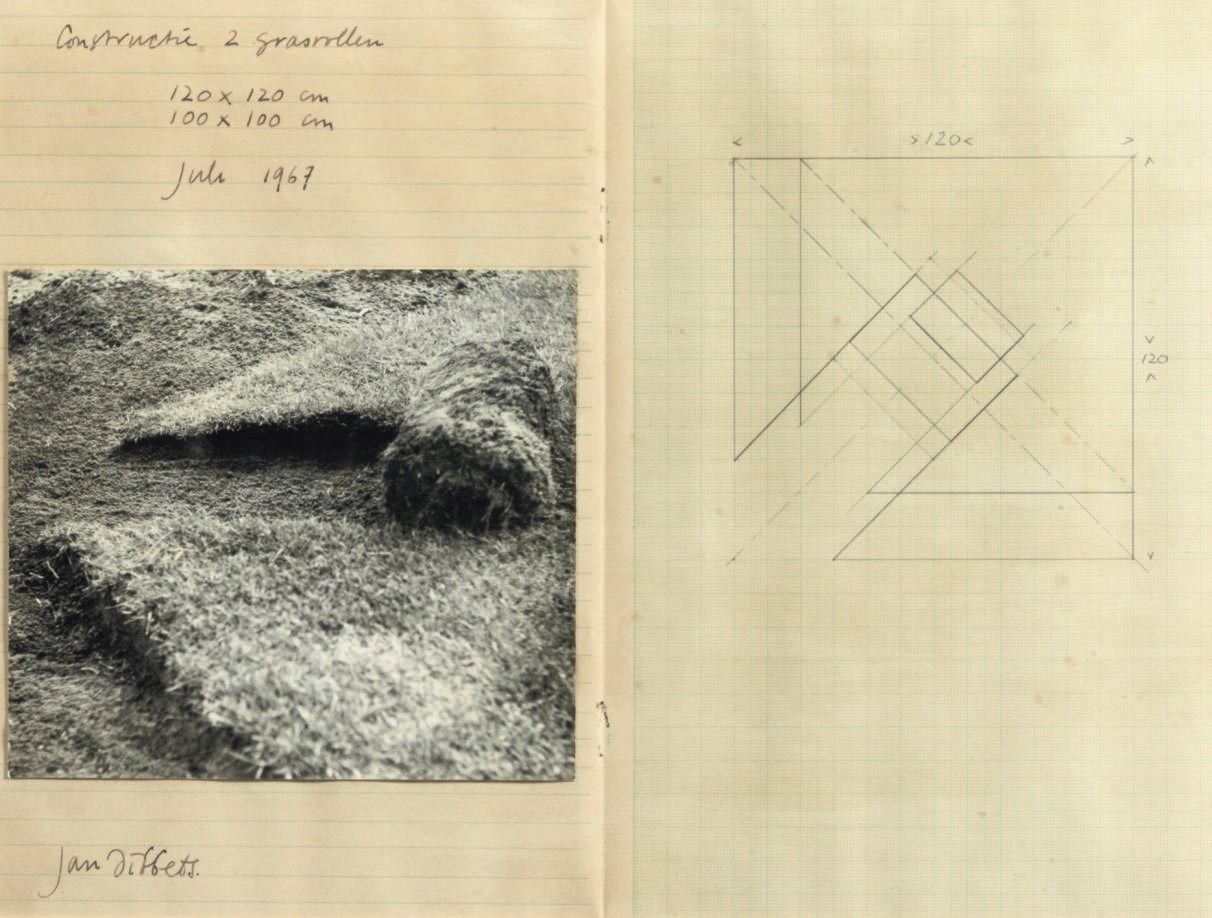 Constructie 2 grasrollen
120 x 120 cm
100 x 100 cm
Juli 1967
Jan Dibbets.
120
120